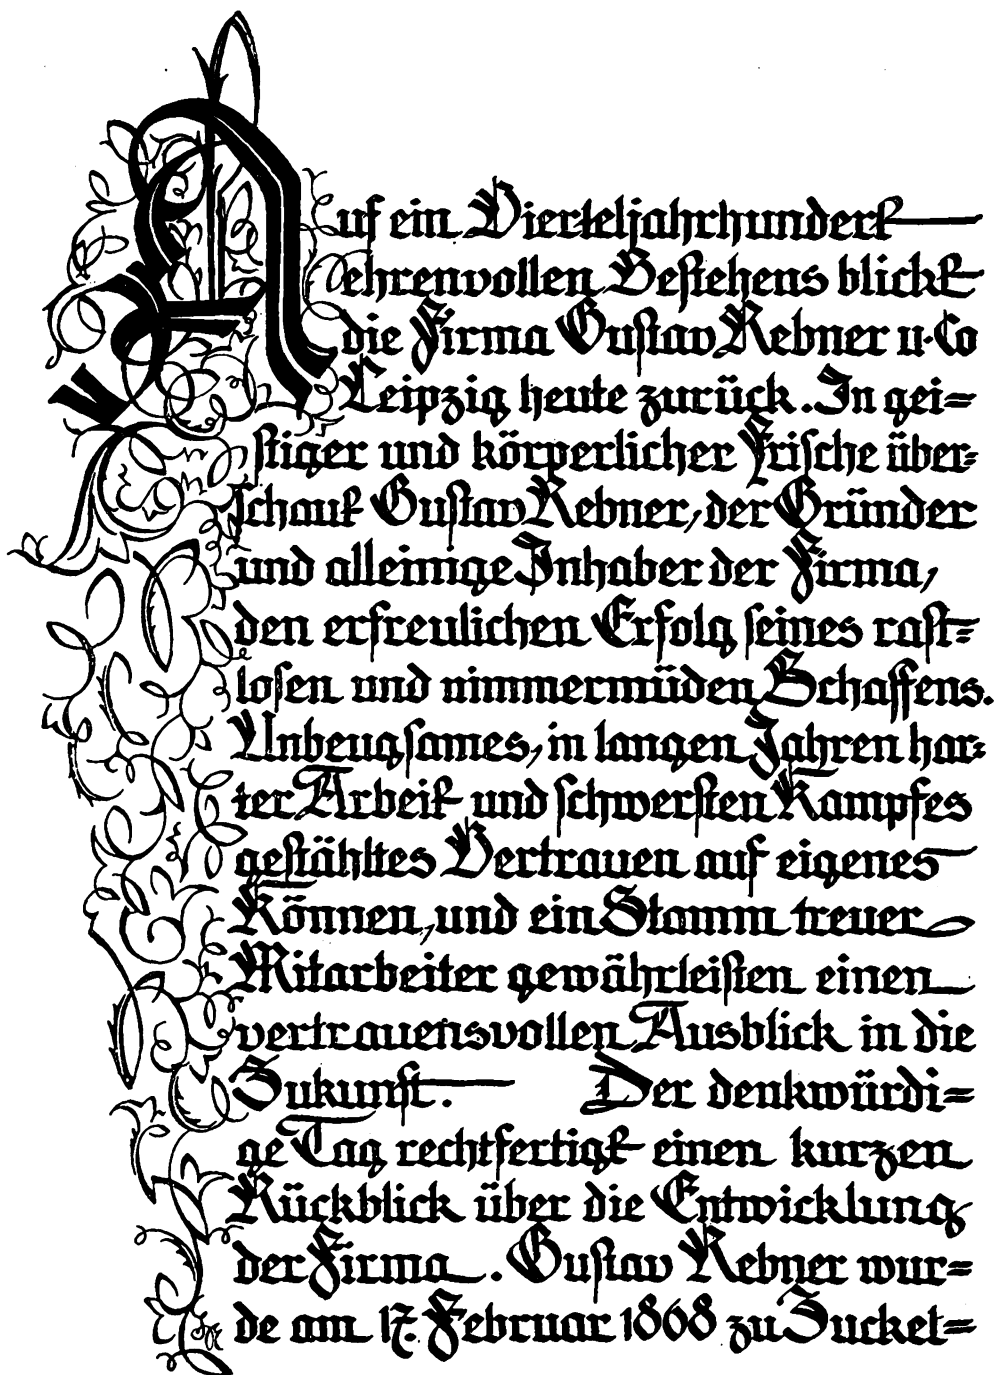 Auf ein Vierteljahrhundert
ehrenvollen Bestehens blickt
die Firma Gustav Rebner u. Co
Leipzig heute zurück. In gei=
stiger und körperlicher Frische über=
schaut Gustav Rebner, der Gründer
und alleinige Inhaber der Firma,
den erfreulichen Erfolg seines rast=
losen und nimmermüden Schaffens.
Unbeugsames, in langen Jahren har=
ter Arbeit und schwersten Kampfes
gestähltes Vertrauen auf eigenes
Können, und ein Stamm treuer
Mitarbeiter gewährleisten einen
vertrauensvollen Ausblick in die
Zukunft. Der denkwürdi=
ge Tag rechtfertigt einen kurzen
Rückblick über die Entwicklung
der Firma. Gustav Rebner wur=
de am 17. Februar 1868 zu Zucket=